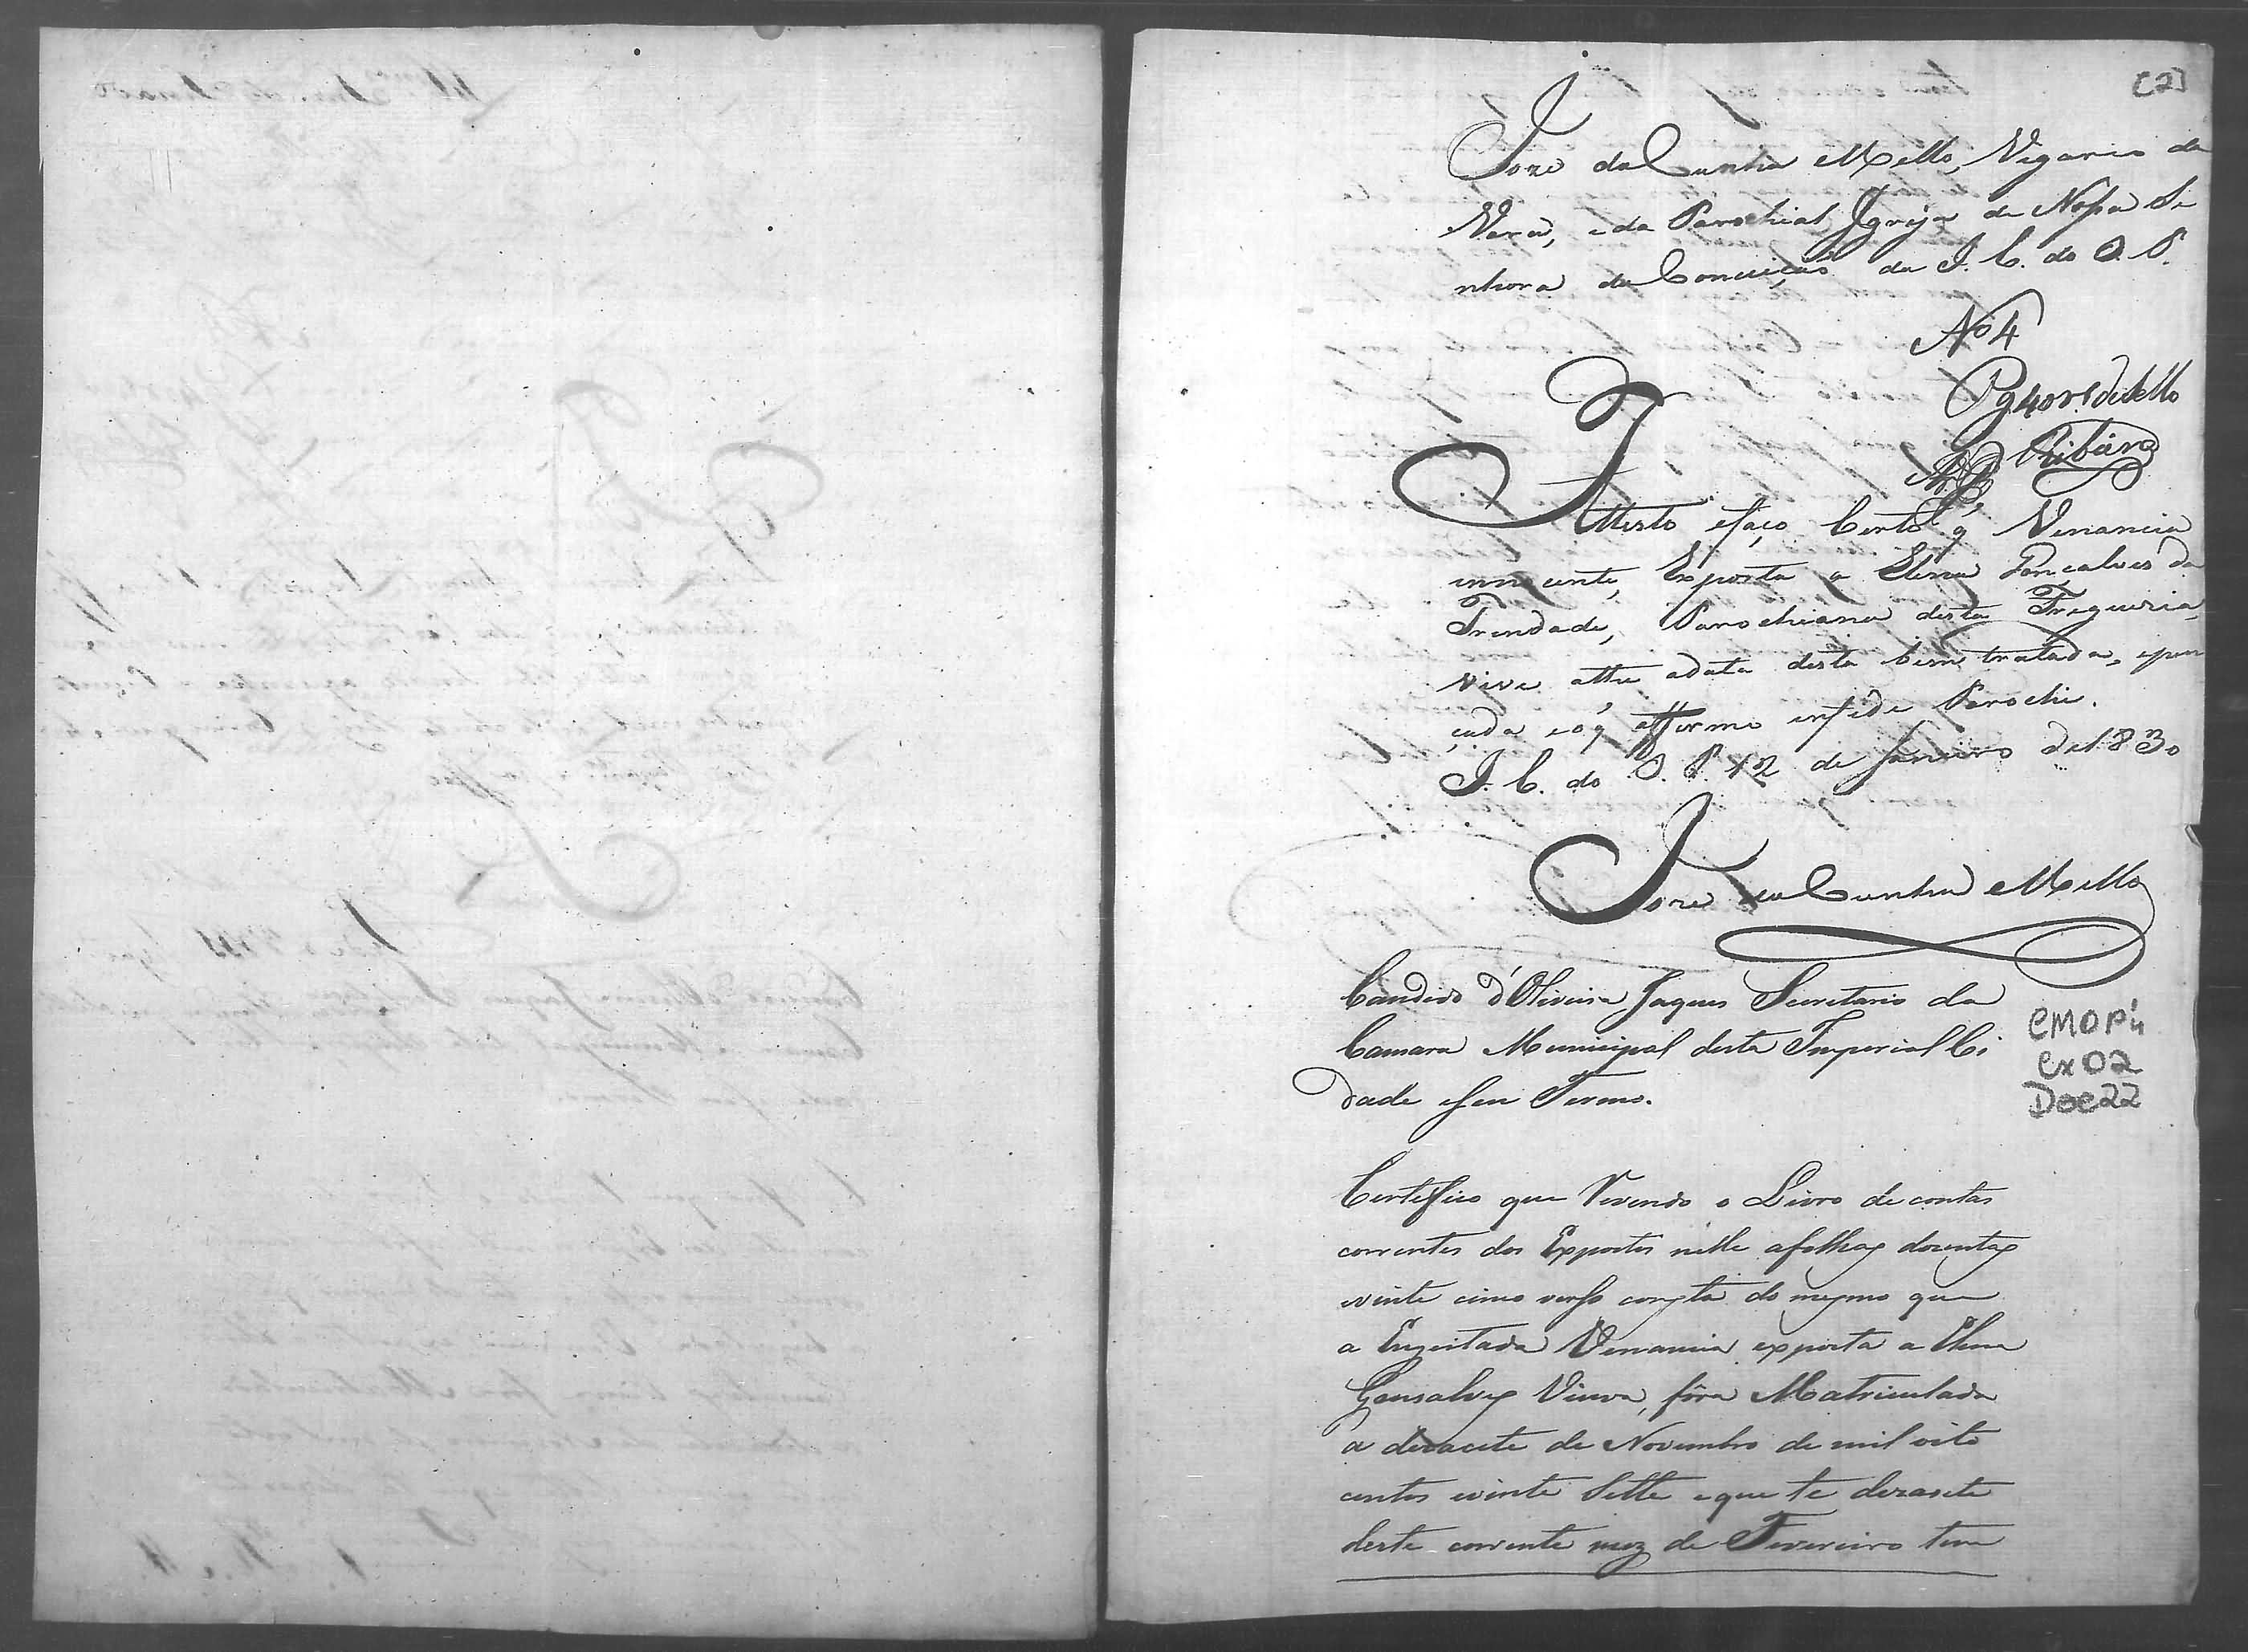 [2]
Joze da Cunha Mello, Vigario da
Vara, e da Parochial Igreja de Nossa Se
nhora da Conceição da I. C. do O. P.
No 4
Pg 40 rs de sello
Ribeiro
Attesto e faço Certo q Venancia
innocente, Exposta a Elena Gonçalves da
Trindade, Parochiana desta Freguezia,
vive athe a data desta bem tratada, e pen
çada e o q affirmo in fide Parochi.
I. C. do O. P. 12 de Janeiro de 1830
Joze da Cunha Mello
Candido d'Oliveira Jaques Secretario da
Camara Municipal desta Imperial Ci
dade e seu Termo.
CMOP
Cx 02
Doc 22
Certifico que Revendo o Livro de contas
correntes dos Expostos nelle a folhas dozentas
e vinte cinco verso consta do mesmo que
a Engeitada Venancia exposta a Elena
Gonsalves Viuva, fôra Matriculada
a dezacete de Novembro de mil oito
centos e vinte Sette e que te dezasete
deste corrente mez de Fevereiro tem